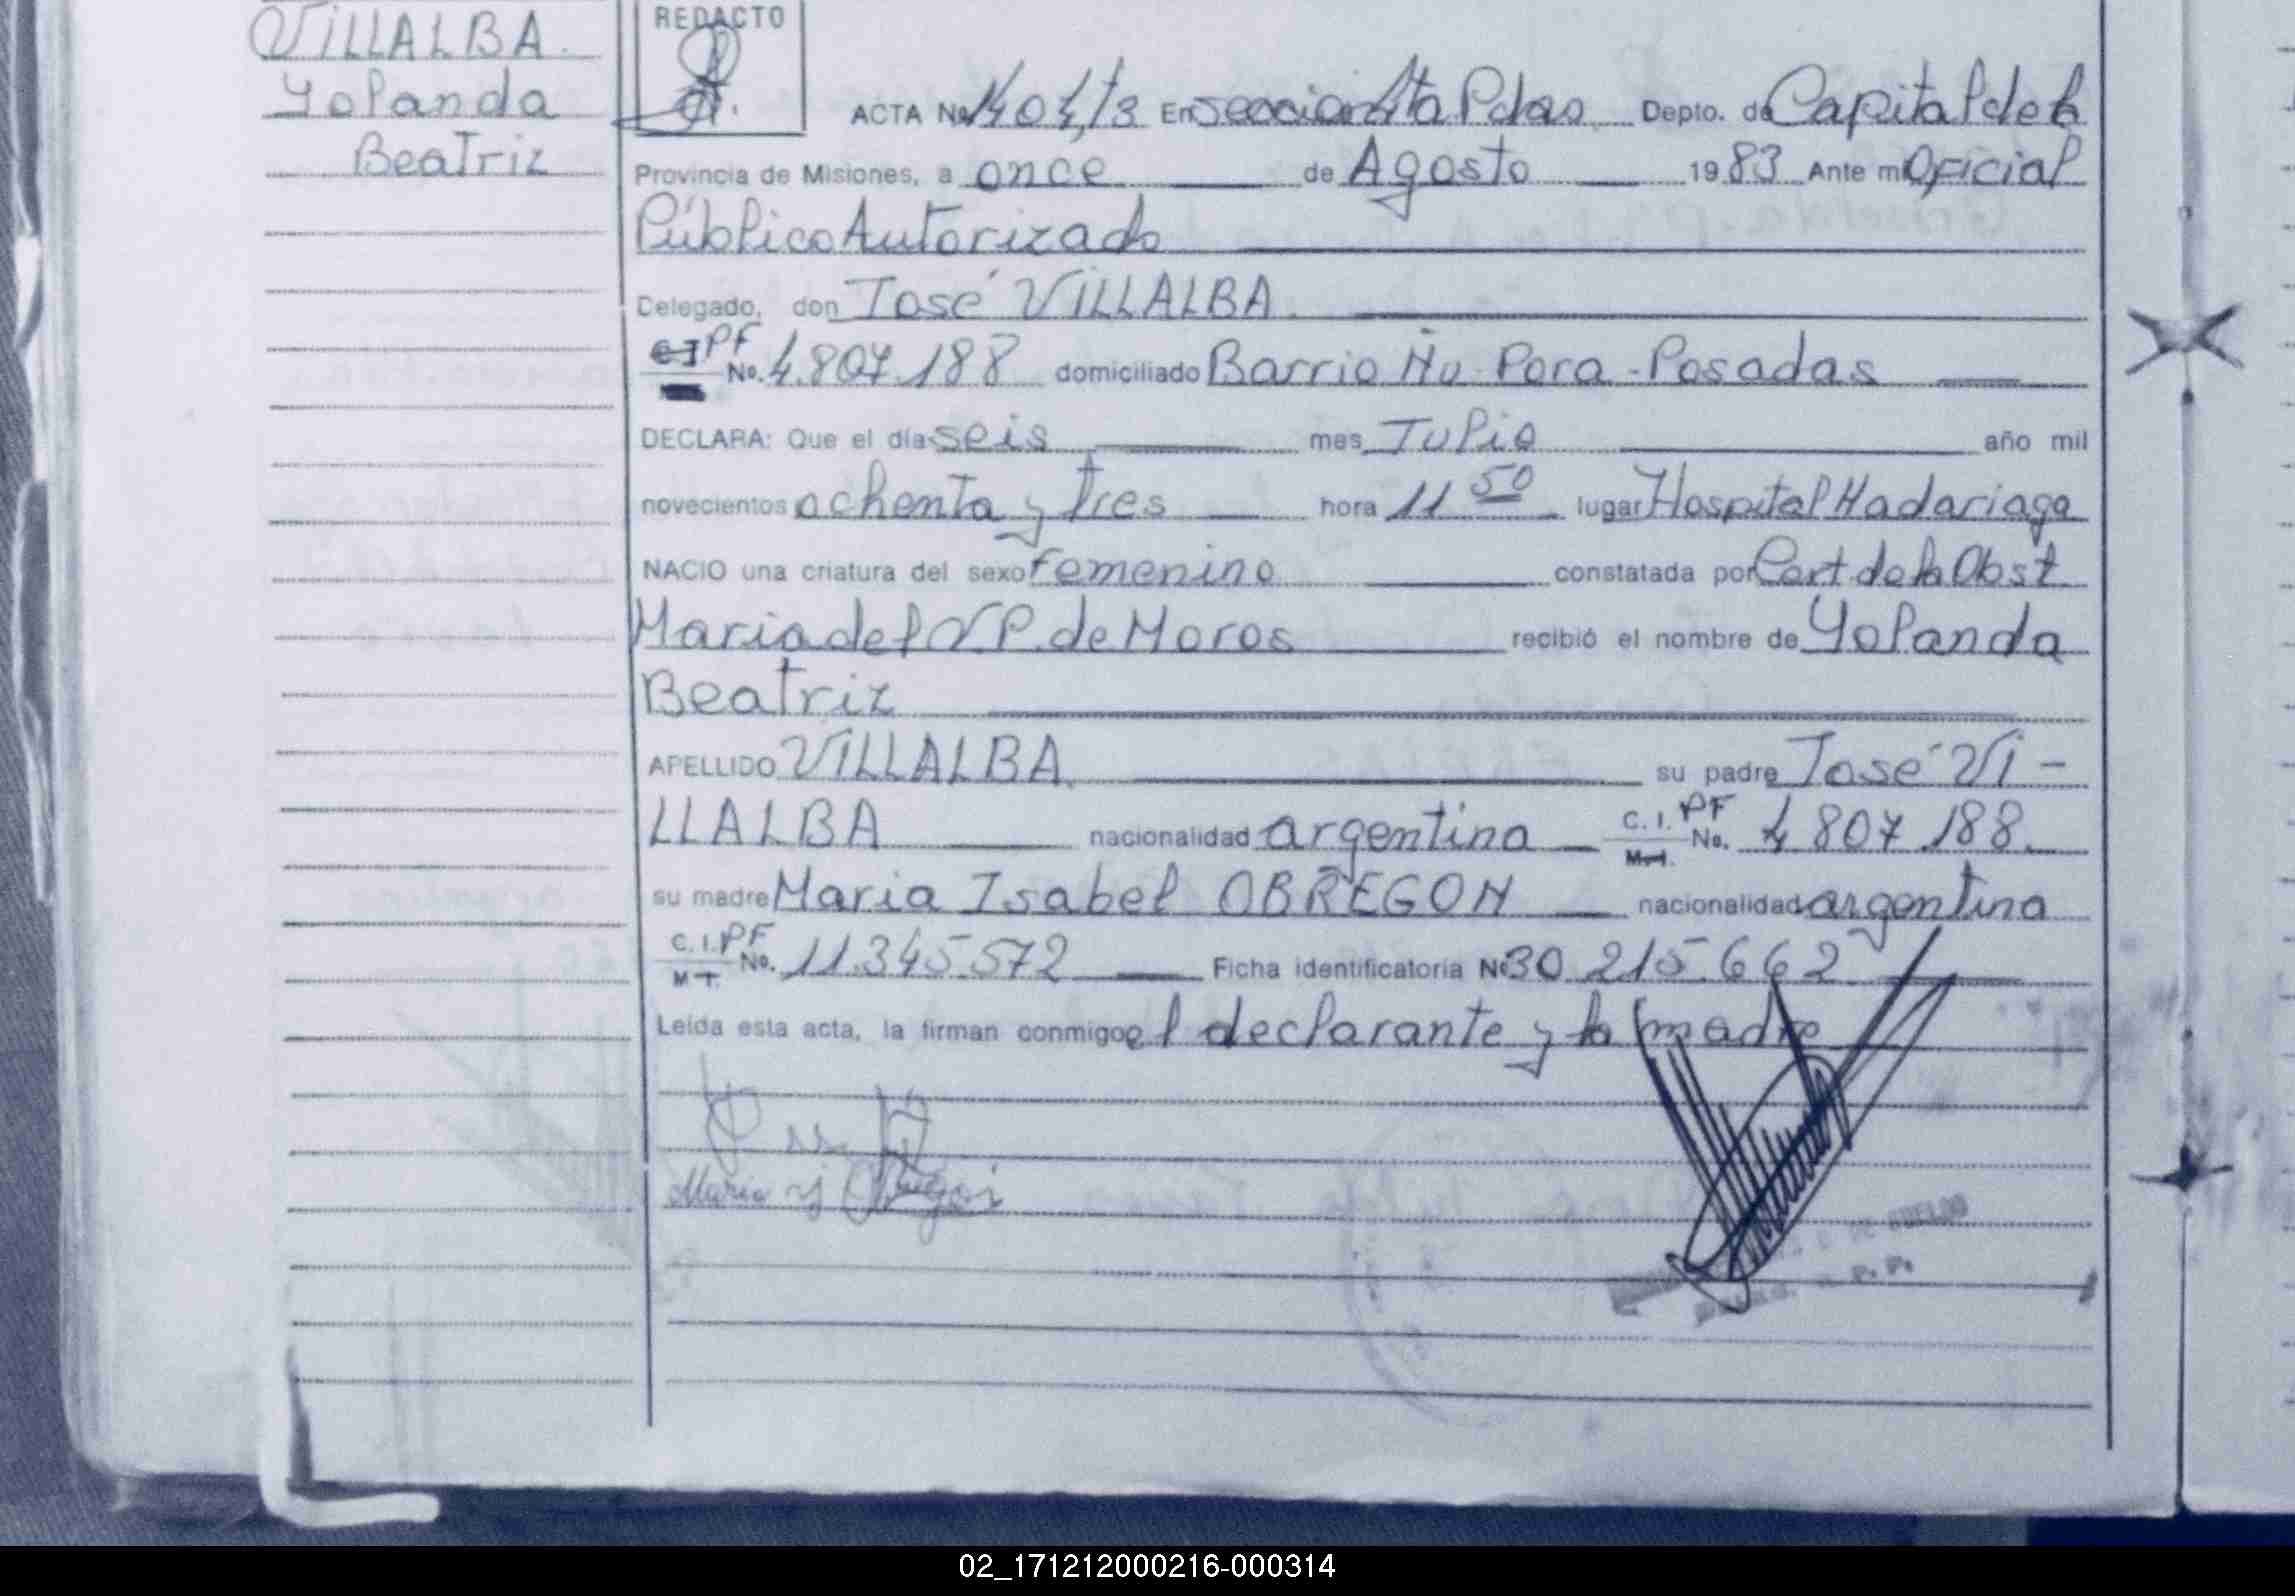 VILLALBA.
Yolanda
Beatriz
REDACTO
ACTA No. 1404/3 En sección 4ta Pdas. Depto. de Capital de la
Provincia de Misiones, a once de Agosto 1983 Ante mi Oficial
Público Autorizado
Delegado, don José VILLALBA.
C.I. PF No. 4.807.188 domiciliado Barrio Ñu Pora - Posadas
DECLARA: Que el día seis mes Julio año mil
novecientos ochenta y tres hora 11 50 lugar Hospital Madariaga
NACIO una criatura del sexo femenino constatada por Cert. de la Obst
Maria del V.P. de Moros recibió el nombre de Yolanda
Beatriz
APELLIDO VILLALBA. su padre José VI-
LLALBA nacionalidad argentina C.I. PF No. 4 807 188.
su madre Maria Isabel OBREGON nacionalidad argentina
C.I. PF No. 11.345.572 Ficha identificatoria No 30.215.662
Leída esta acta, la firman conmigo el declarante y la madre
Maria
P. P.
02_171212000216-000314